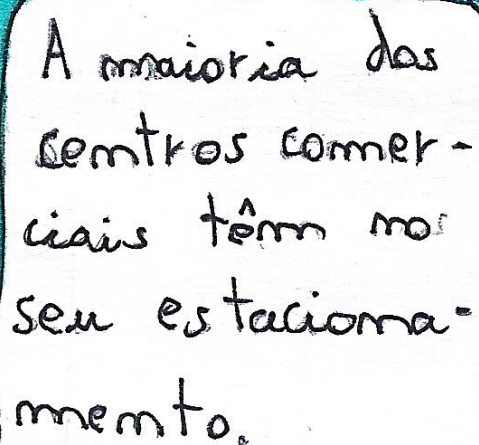 A maioria dos
centros comer-
ciais têm no
seu estaciona-
mento.